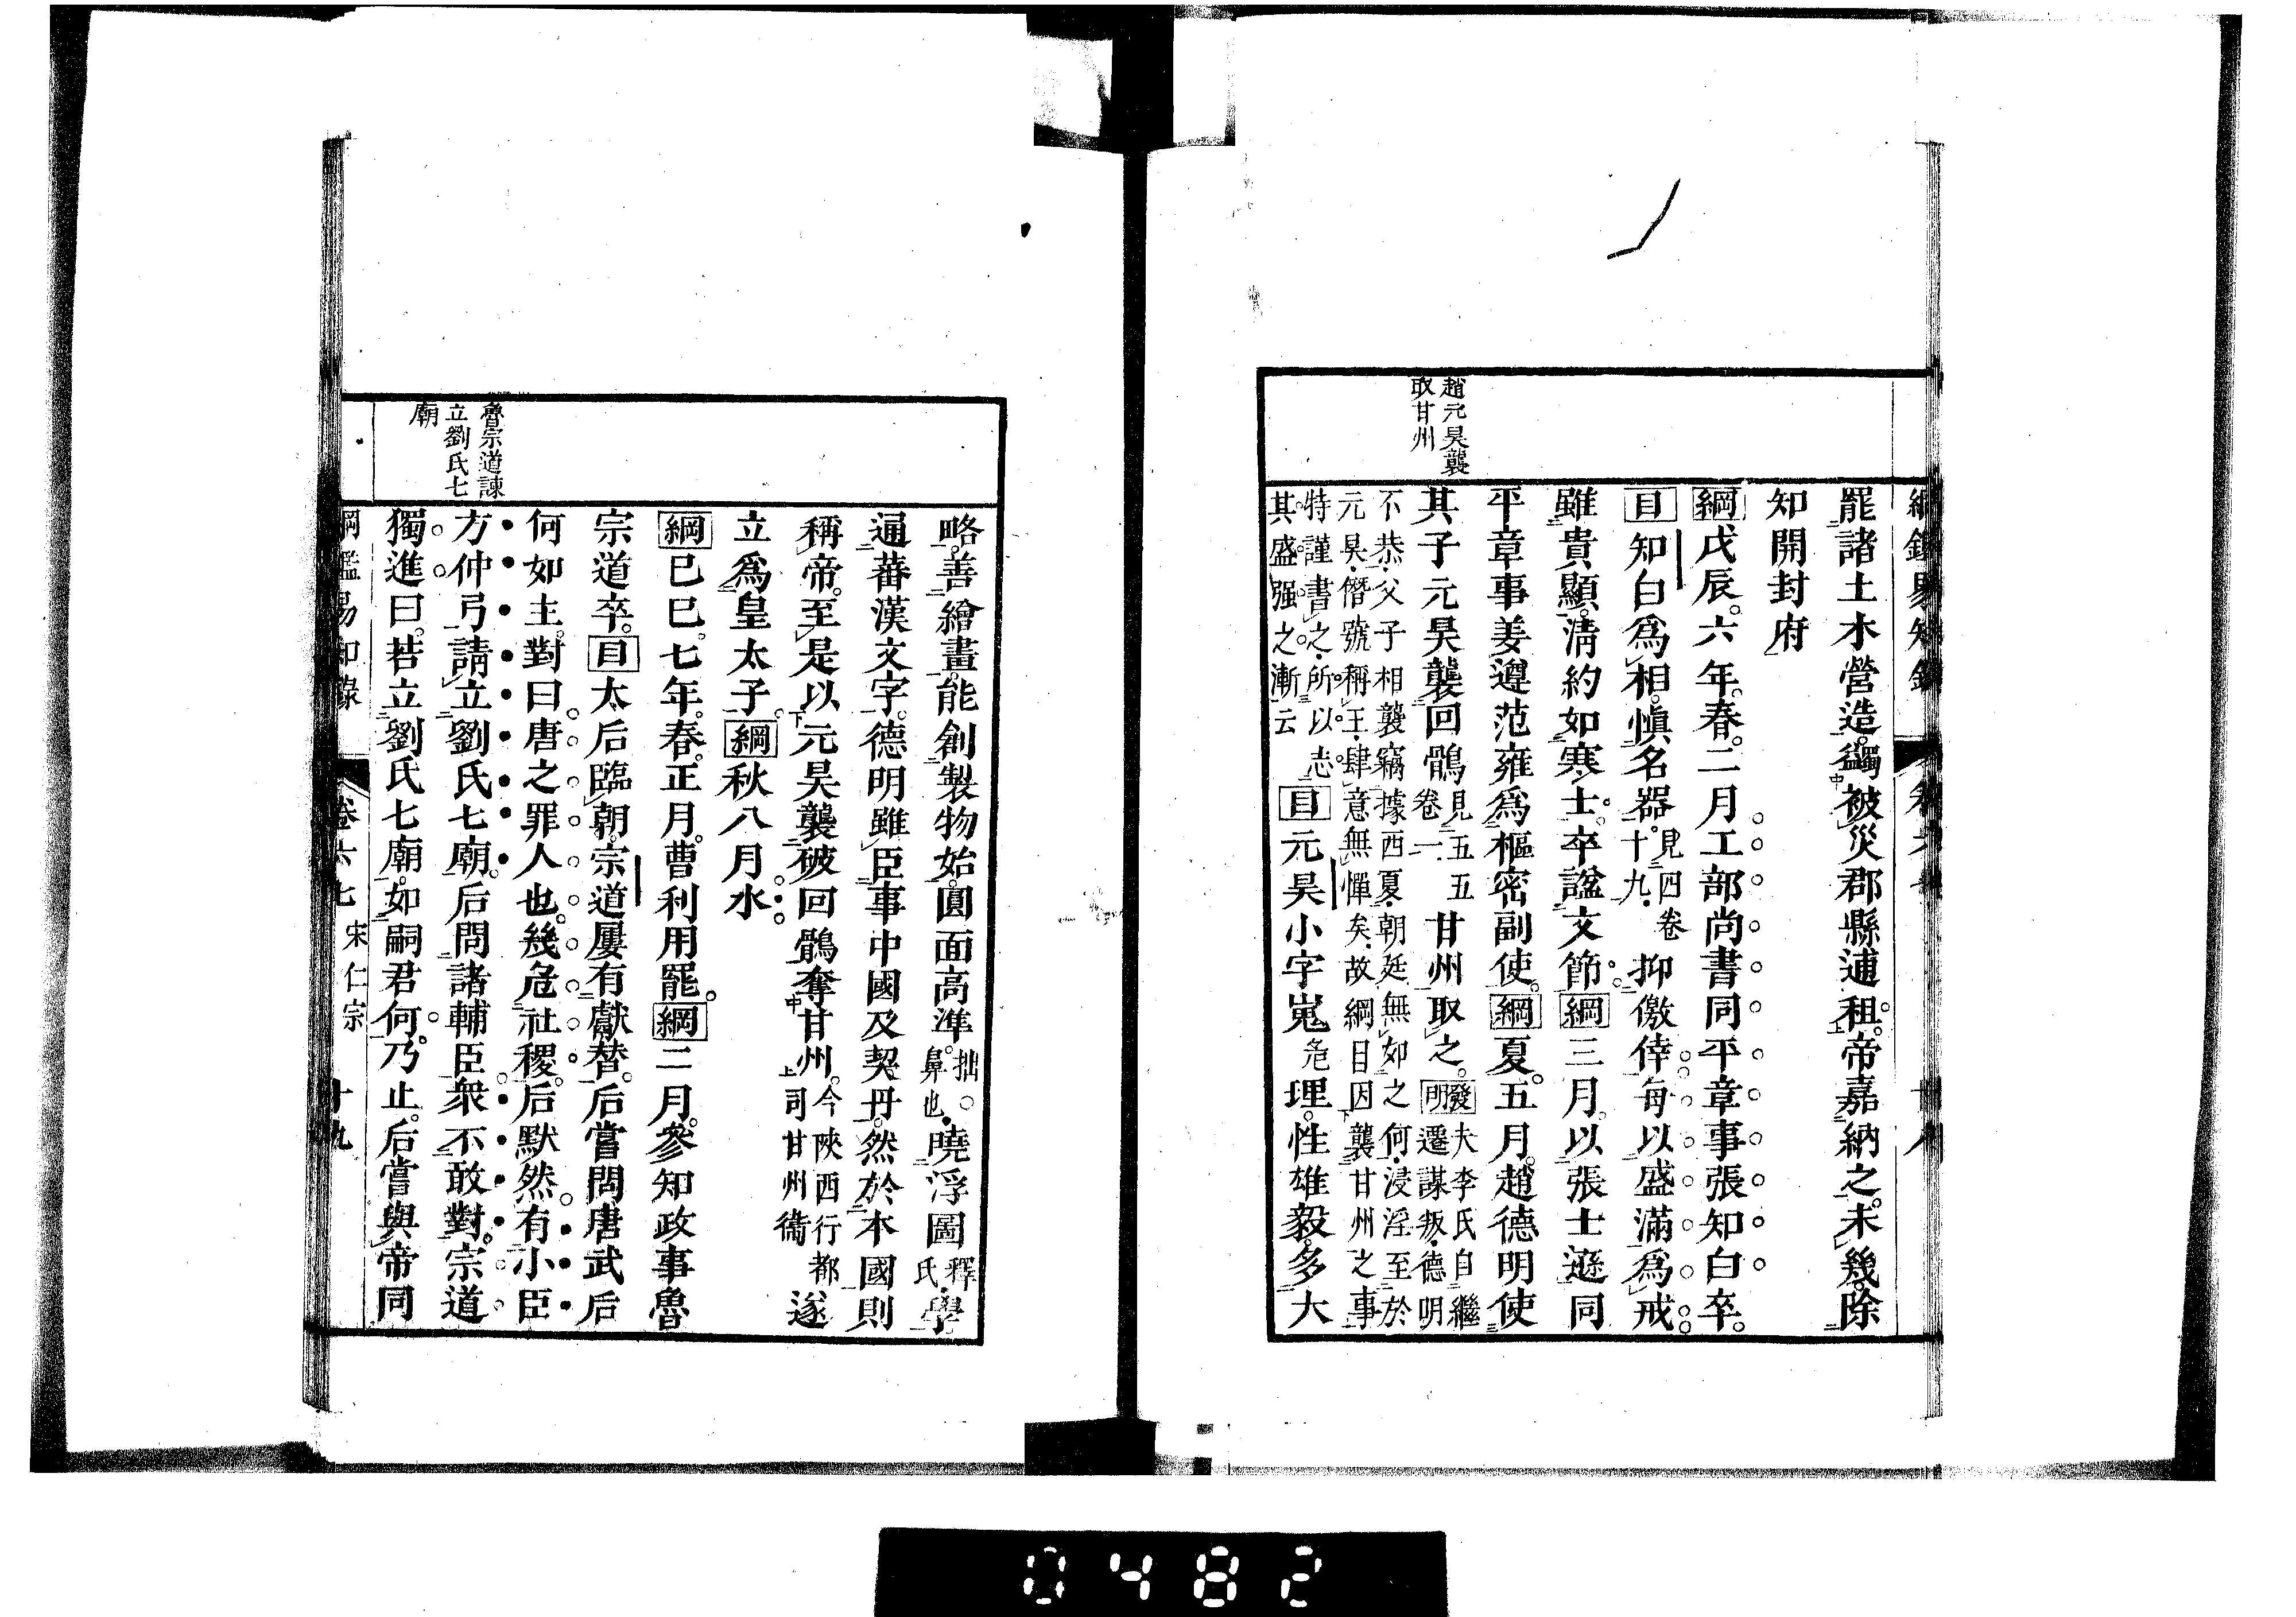 趙元昊襲
取甘州
罷諸土木營造蠲被災郡縣逋租帝嘉納之未幾除
知開封府
綱戊辰六年春二月工部尚書同平章事張知白卒
目知白爲相慎名器見四卷十九抑僥倖每以盛滿爲戒
雖貴顯清約如寒士卒諡文節綱三月以張士遜同
平章事姜遵范雍爲樞密副使綱夏五月趙德明使
其子元昊襲回鶻見五五卷一甘州取之發明大李氏自繼遷謀叛德明
不恭父子相襲竊據西夏朝廷無如之何浸淫至於
元昊僭號稱王肆意無憚矣故綱目因襲甘州之事
特謹書之所以志
其盛强之漸云目元昊小字嵬危理性雄毅多大
略善繪畫能創製物始圓面高準拙鼻也曉浮圖釋氏學
通蕃漢文字德明雖臣事中國及契丹然於本國則
稱帝至是以元昊襲破回鶻奪甘州今陝西行都司甘州衞遂
立爲皇太子綱秋八月水
綱己巳七年春正月曹利用罷綱二月參知政事魯
宗道卒目太后臨朝宗道屢有獻替后嘗問唐武后
何如主對曰唐之罪人也幾危社稷后默然有小臣
方仲弓請立劉氏七廟后問諸輔臣衆不敢對宗道
獨進曰若立劉氏七廟如嗣君何乃止后嘗與帝同
魯宗道諫
立劉氏七
廟
綱鑑易知錄 卷六七 宋仁宗 十九